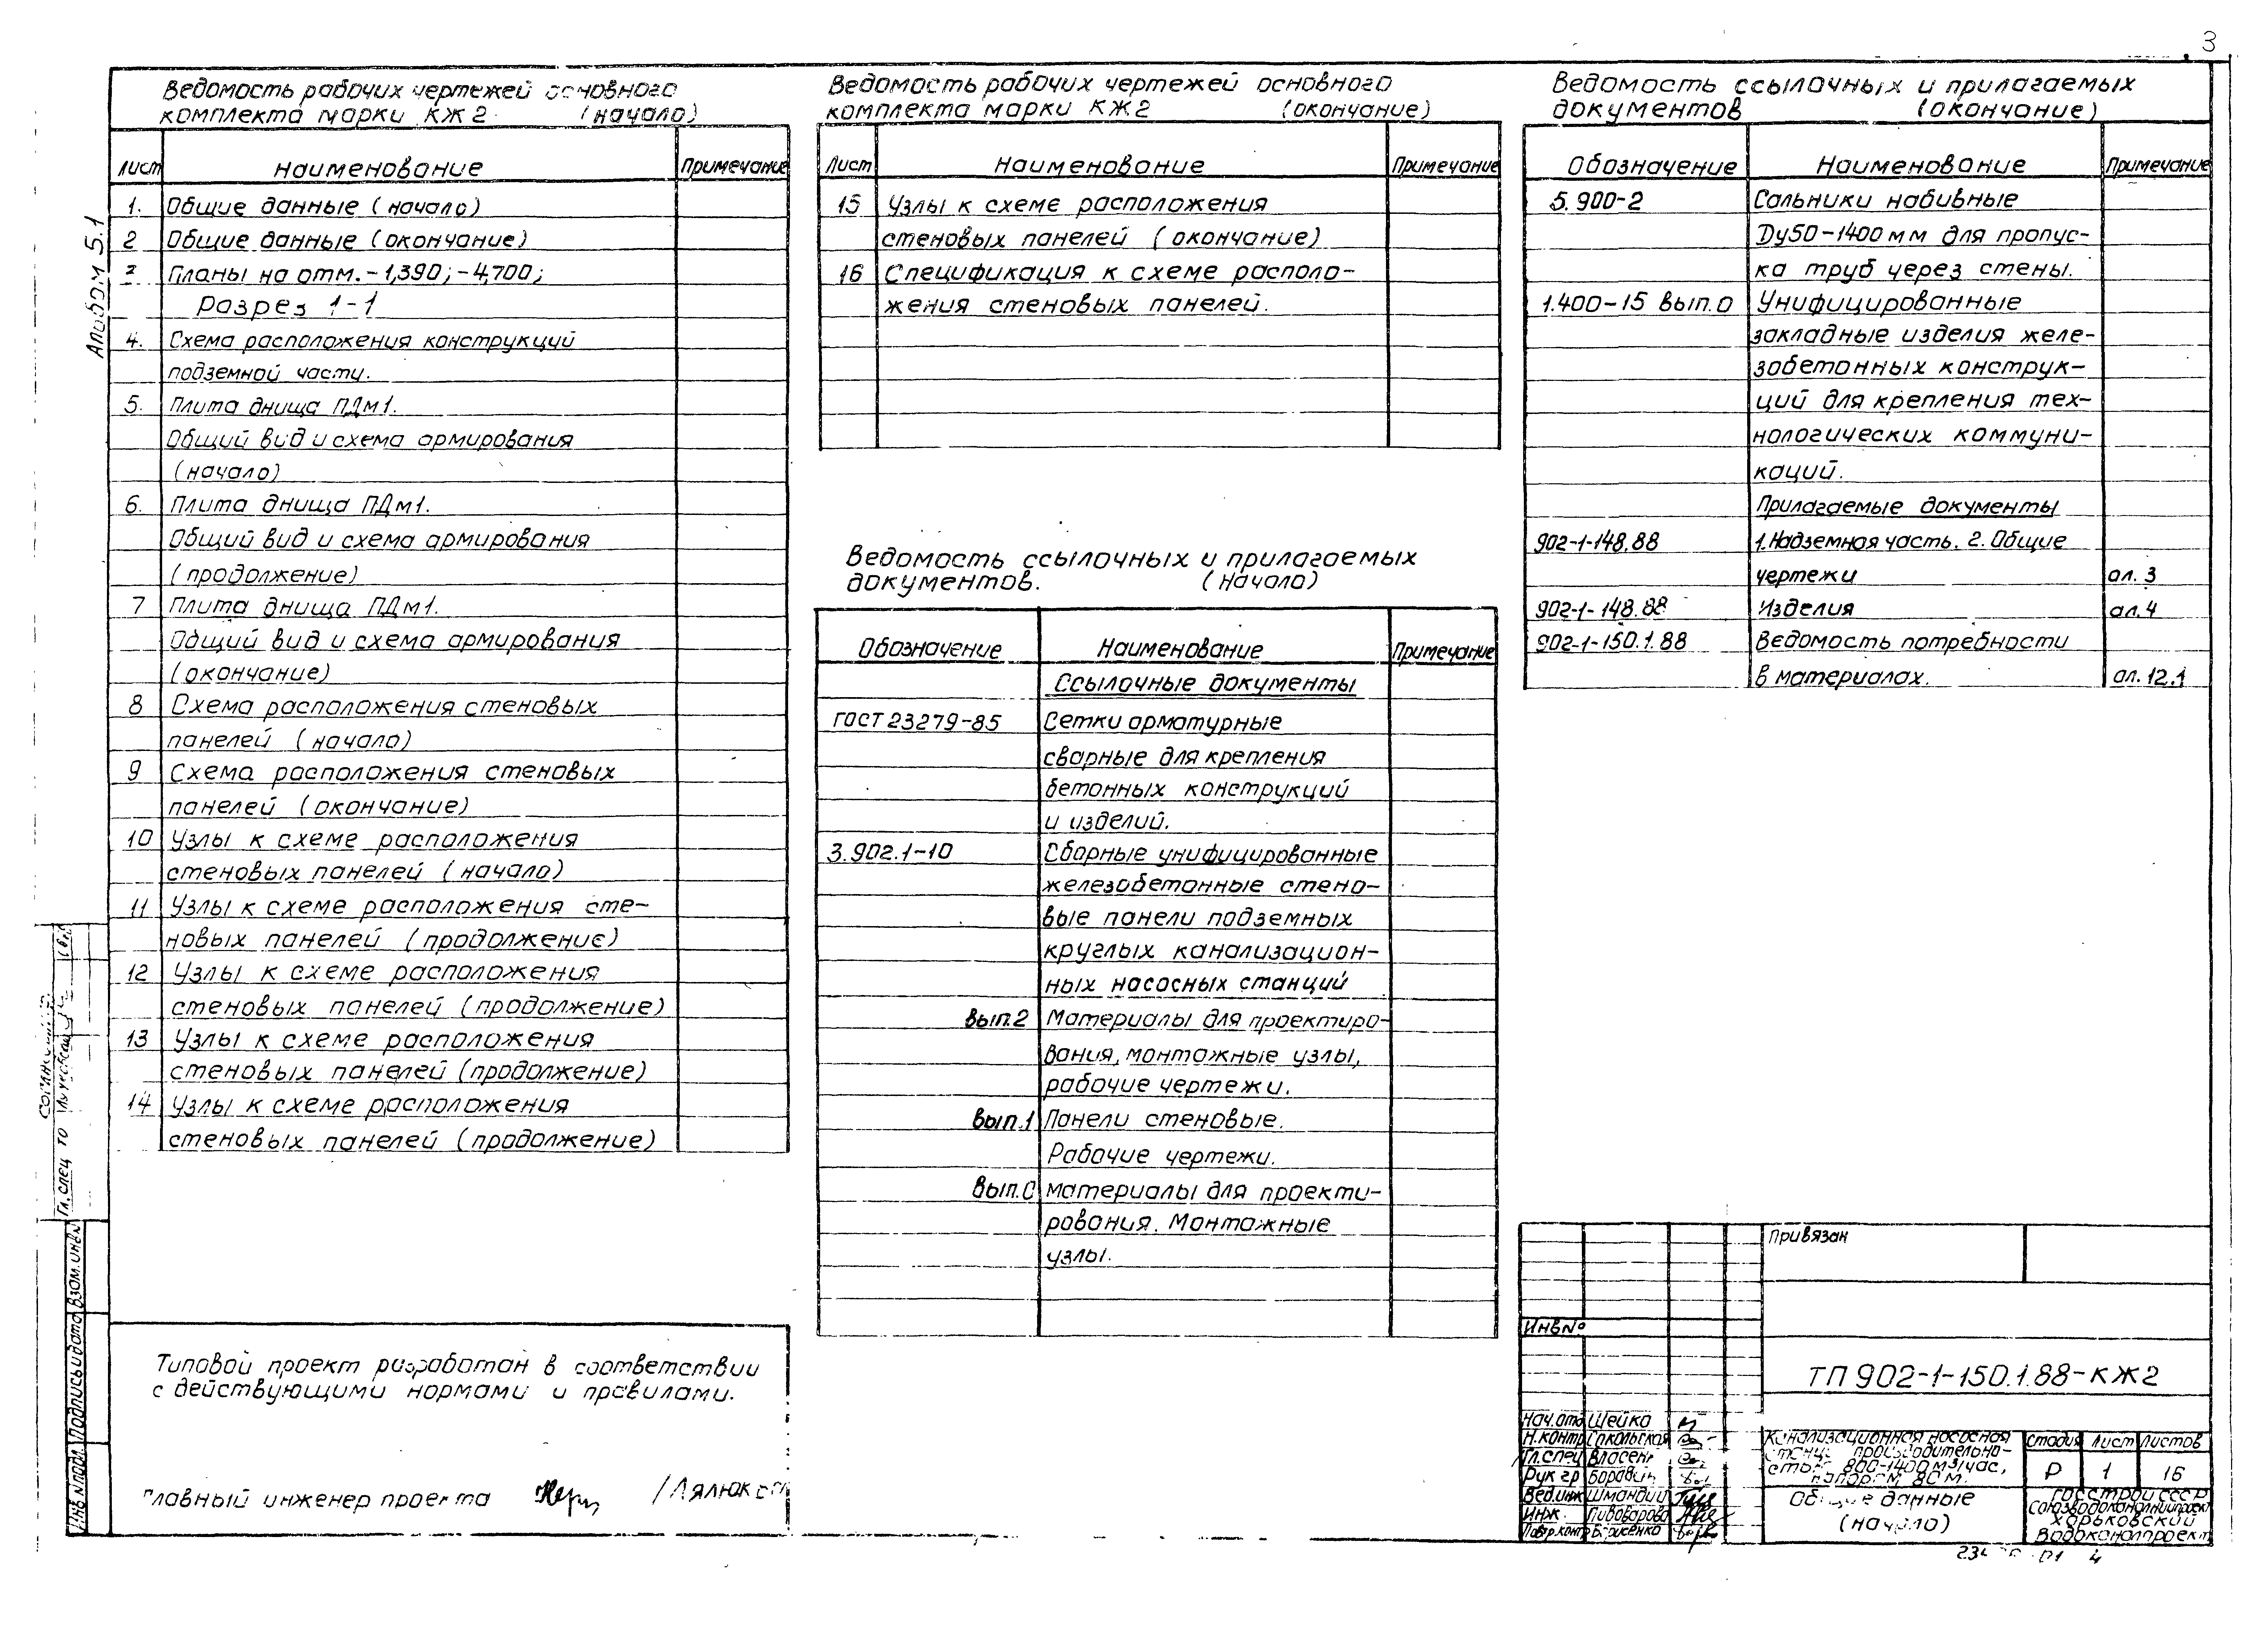 3
Альбом 5.1
Ведомость рабочих чертежей основного
комплекта марки КЖ2 (начало)
Лист Наименование Примечание
1. Общие данные (начало)
2 Общие данные (окончание)
Планы на отм. -1,390; -4,700;
Разрез 1-1
4. Схема расположения конструкций
подземной части.
5. Плита днища ПДм1.
Общий вид и схема армирования
(начало)
6. Плита днища ПДм1.
Общий вид и схема армирования
(продолжение)
7 Плита днища ПДм1.
Общий вид и схема армирования
(окончание)
8 Схема расположения стеновых
панелей (начало)
9 Схема расположения стеновых
панелей (окончание)
10 Узлы к схеме расположения
стеновых панелей (начало)
11 Узлы к схеме расположения сте-
новых панелей (продолжение)
12 Узлы к схеме расположения
стеновых панелей (продолжение)
13 Узлы к схеме расположения
стеновых панелей (продолжение)
14 Узлы к схеме расположения
стеновых панелей (продолжение)
Типовой проект разработан в соответствии
с действующими нормами и правилами.
Главный инженер проекта
Ведомость рабочих чертежей основного
комплекта марки КЖ2 (окончание)
Лист Наименование Примечание
15 Узлы к схеме расположения
стеновых панелей (окончание)
16 Спецификация к схеме располо-
жения стеновых панелей.
Ведомость ссылочных и прилагаемых
документов. (начало)
Обозначение Наименование Примечание
Ссылочные документы
ГОСТ 23279-85 Сетки арматурные
сварные для крепления
бетонных конструкций
и изделий.
3.902.1-10 Сборные унифицированные
железобетонные стено-
вые панели подземных
круглых канализацион-
ных насосных станций
вып.2 Материалы для проектиро-
вания, монтажные узлы,
рабочие чертежи.
вып.1 Панели стеновые.
Рабочие чертежи.
вып.0 материалы для проекти-
рования. Монтажные
узлы.
Ведомость ссылочных и прилагаемых
документов (окончание)
Обозначение Наименование Примечание
5.900-2 Сальники набивные
Ду50-1400мм для пропус-
ка труб через стены.
1.400-15 вып.0 Унифицированные
закладные изделия желе-
зобетонных конструк-
ций для крепления тех-
нологических коммуни-
каций.
Прилагаемые документы
902-1-148.88 1.Надземная часть. 2. Общие
чертежи ал.3
902-1-148.88 Изделия ал.4
902-1-150.1.88 Ведомость потребности
в материалах. ал.12.1
Привязан
Инв№
ТП 902-1-150.1.88-КЖ2
Нач.отд Шейко
Н.контр Сокольская
Гл.спец
Рук гр
Вед.инж Шмандий
Инж. Пивоварова
Борисенко
Канализационная насосная
производительно-
стью 800-1400м³/час,
напором 80м.
Стадия Лист Листов
Р 1 16
Общие данные
(начало)
Госстрой СССР
Союзводоканалниипроект
Харьковский
Водоканалпроект
4
Гл.спец ТО
Взам.инв№
Подпись и дата
Инв.№подл.